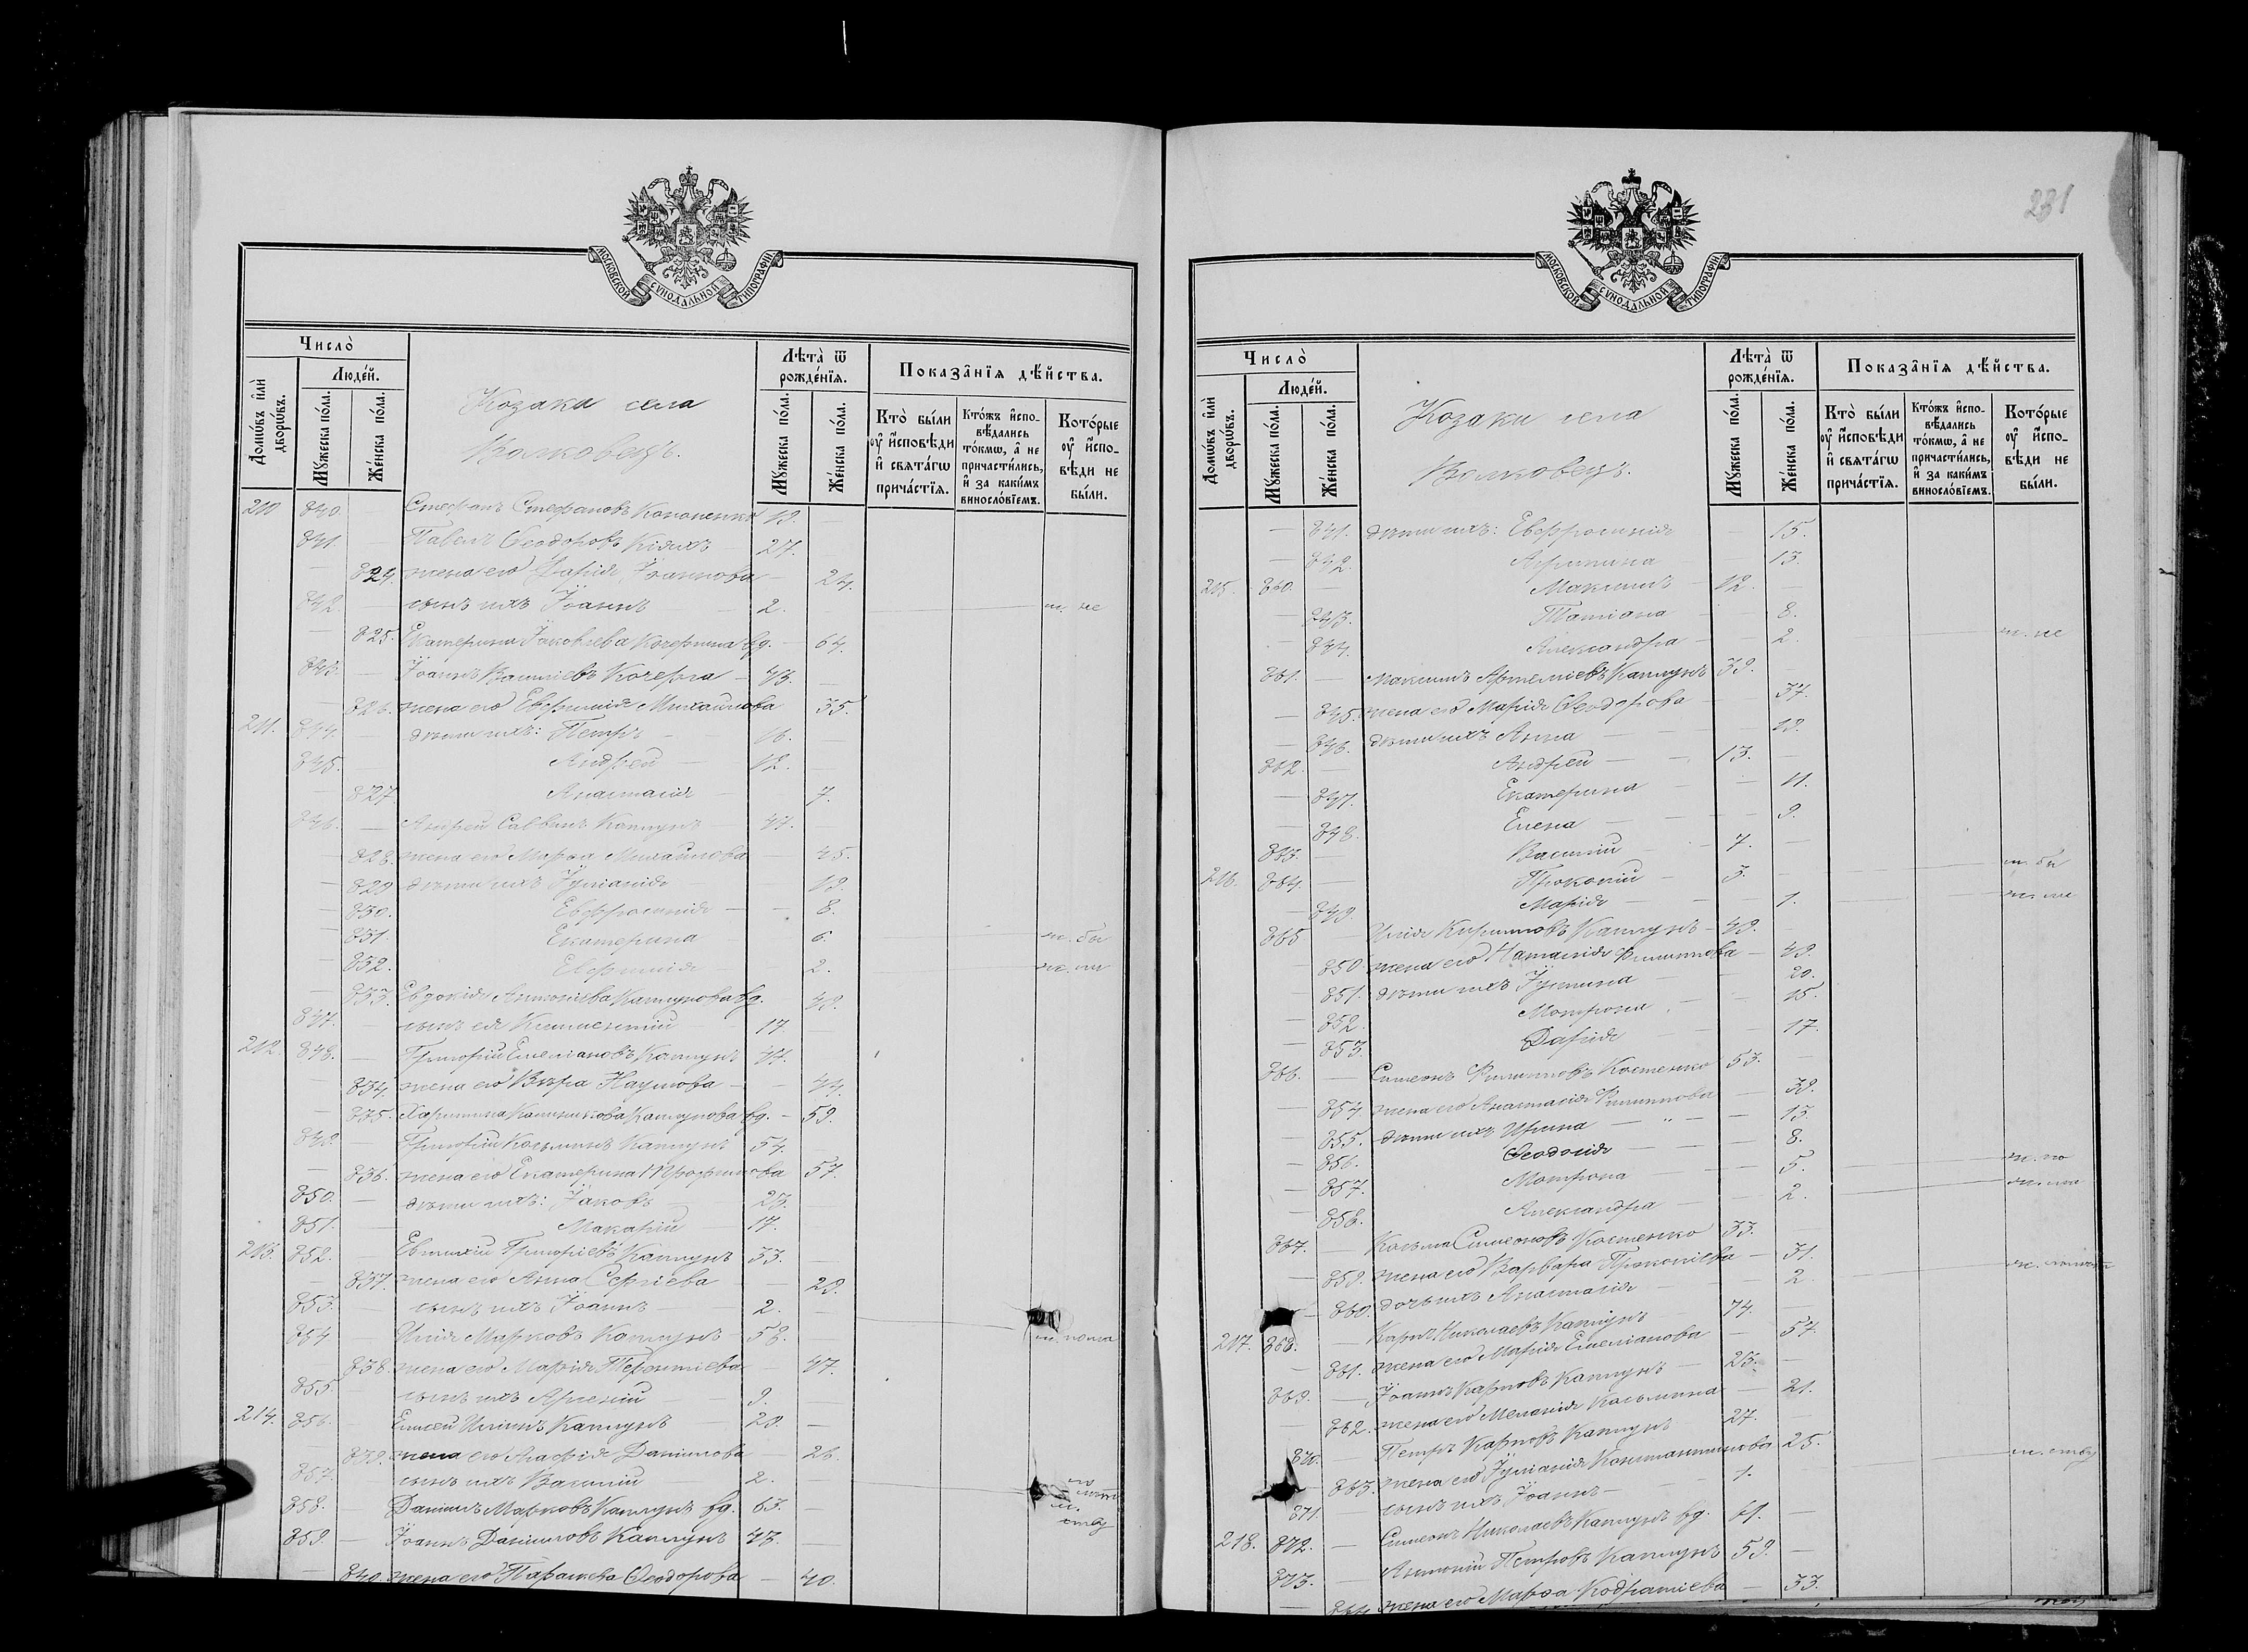 МОСКОВСКОЙ СѴНОДАЛЬНОЙ ТИПОГРАФІИ
Число̀
Домѡ́въ и҆лѝ дворѡ́въ.
Люде́й.
Мꙋ́жеска по́ла.
Же́нска по́ла.
Козаки села
Волковецъ.
Лѣта̀ ѿ рожде́нїѧ.
Мꙋ́жеска по́ла.
Же́нска по́ла.
Показа̂нїѧ дѣ́йства.
Кто̀ бы́ли оу҆ и҆сповѣ́ди и҆ свѧта́гѡ прича́стїѧ.
Кто́жъ и҆спо-вѣ́дались то́кмѡ, а҆ не причасти́лись, и҆ за каки́мъ виносло́вїемъ.
Кото́рые оу҆ и҆спо-вѣ́ди не бы́ли.
210 840. — Стефанъ Стефановъ Кононенко 19. —
841. — Павелъ Ѳеодоровъ Кіяхъ 27.
— 824. жена его Дарія Іоаннова — 24.
842. — сынъ ихъ Іоаннъ — 2. —
— 825. Екатерина Іаковлева Кочергина вд. — 64.
843. — Іоаннъ Василіевъ Кочерга — 43. —
— 826. жена его Евфимія Михаилова 35.
211. 844. — дѣти ихъ: Петръ — 16.
845. — Андрей — 12.
— 827. Анастасія — 7.
846. — Андрей Саввинъ Каплунъ — 47.
— 828. жена его Марѳа Михаилова — 45.
— 829 дѣти ихъ Іуліанія — 19.
— 830. Евфросинія — 8.
— 831. Екатерина — 6.
— 832. Евфимія — 2.
— 833. Евдокія Антоніева Каплунова вд. — 49.
847. — сынъ ея Климентій — 17.
212. 848. — Григорій Емеліановъ Каплунъ 47. —
— 834. жена его Вѣра Наумова — 44.
— 835. Харитина Калиникова Каплунова вд. — 59.
849. — Григорій Косьминъ Каплунъ 54.
— 836. жена его Екатерина Трофимова 57.
850. — дѣти ихъ: Іаковъ — 23.
851. — Макарій — 17.
213. 852. — Евтихій Григоріевъ Каплунъ 33. —
— 837. жена его Анна Сергіева — 29.
853. — сынъ ихъ Іоаннъ — 2. —
854 — Илія Марковъ Каплунъ — 58.
— 838. жена его Марія Терентіева — 47.
855. — сынъ ихъ Арсеній — 9. —
214. 856. — Елисей Иліинъ Каплунъ — 29. —
— 839. жена его Агафія Даніилова — 26.
857. — сынъ ихъ Василій — 2. —
858. — Даніилъ Марковъ Каплунъ вд. 63. —
859. — Іоаннъ Даніиловъ Каплунъ 43. —
— 840. жена его Параскева Ѳеодорова — 40.
231
МОСКОВСКОЙ СѴНОДАЛЬНОЙ ТИПОГРАФІИ
Число̀
Домѡ́въ и҆лѝ дворѡ́въ.
Люде́й.
Мꙋ́жеска по́ла.
Же́нска по́ла.
Козаки села
Волковецъ.
Лѣта̀ ѿ рожде́нїѧ.
Мꙋ́жеска по́ла.
Же́нска по́ла.
Показа̂нїѧ дѣ́йства.
Кто̀ бы́ли оу҆ и҆сповѣ́ди и҆ свѧта́гѡ прича́стїѧ.
Кто́жъ и҆спо-вѣ́дались то́кмѡ, а҆ не причасти́лись, и҆ за каки́мъ виносло́вїемъ.
Кото́рые оу҆ и҆спо-вѣ́ди не бы́ли.
— 841. дѣти ихъ: Евфросинія — 15.
— 842. Агрипина — 13.
215. 860. — Максимъ — 12. —
— 843. Татіана — 8.
— 844. Александра — 2.
861. — Максимъ Артеміевъ Каплунъ 39. —
— 845. жена его Марія Ѳеодорова — 37.
— 846. дѣти ихъ Анна — 19.
862. — Андрей — 13. —
— 847. Екатерина — 11.
— 848. Елена — 9.
863. — Василій — 7. —
216. 864. — Прокопій — 3. —
— 849. Марія — 1.
865 — Илія Кириловъ Каплунъ — 49. —
— 850. жена его Наталія Филиппова — 49.
— 851. дѣти ихъ Іустина 20.
— 852. Мотрона — 15.
— 853. Дарія — 17.
866. — Симеонъ Филипповъ Костенко 53. —
— 854. жена его Анастасія Филиппова — 39.
— 855. дѣти ихъ Ирина — 13.
— 856. Ѳеодосія — 8.
— 857. Мотрона — 5.
— 858. Александра — 2.
867. — Косьма Симеоновъ Костенко 33. —
— 859. жена его Варвара Прокопіева — 31.
— 860. дочь ихъ Анастасія — 2.
217. 868. Карпъ Николаевъ Каплунъ 74. —
— 861. жена его Марія Емеліанова — 57.
869. — Іоаннъ Карповъ Каплунъ — 23. —
— 862. жена его Меланія Косьмина — 21.
870. — Петръ Карповъ Каплунъ 27. —
— 863. жена его Іуліанія Константинова 25.
871. — сынъ ихъ Іоаннъ — 1. —
218. 872. — Симеонъ Николаевъ Каплунъ вд. 61. —
873. — Антоній Петровъ Каплунъ 59. —
— 864. жена его Марѳа Кодратіева — 53.